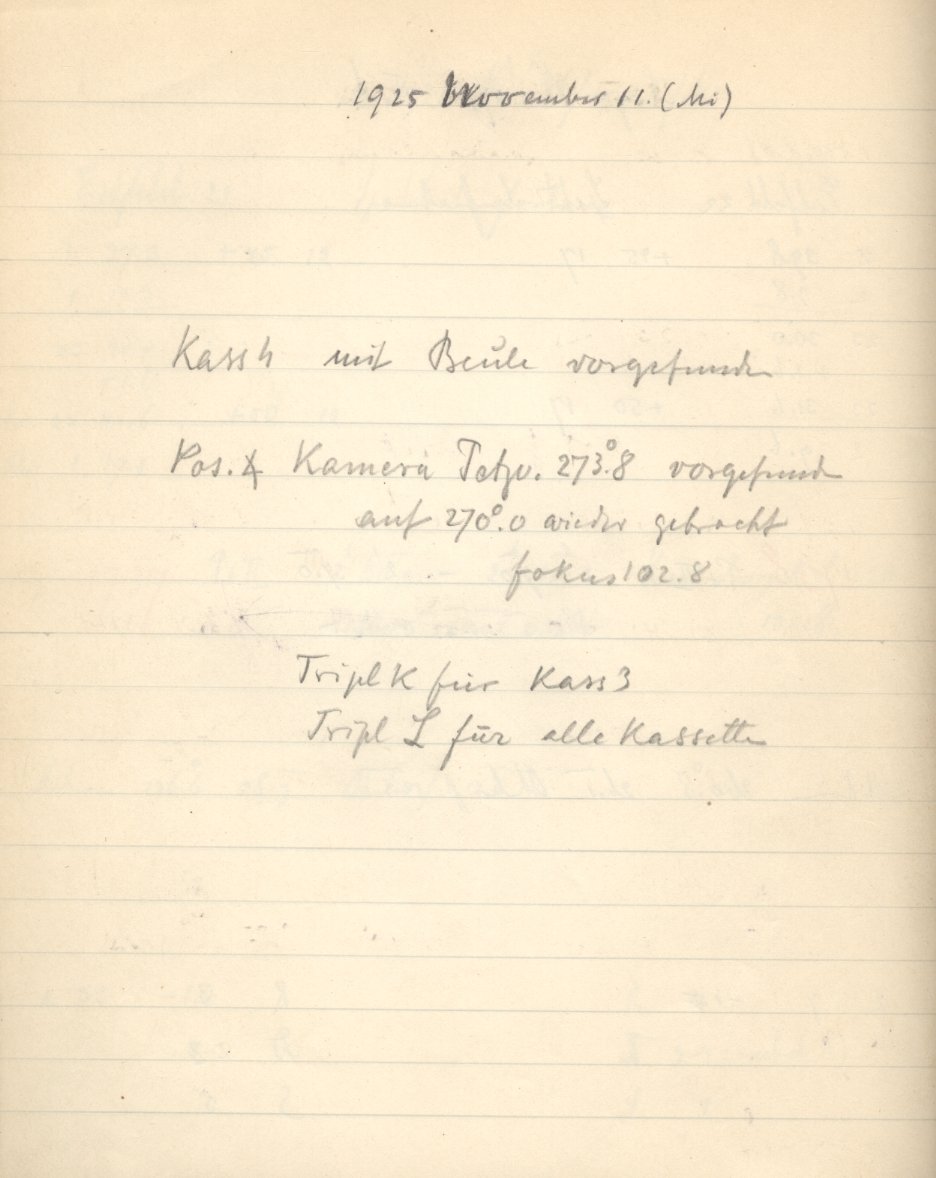 1925 November 11. (Mi)
Kass 4 mit Beule vorgefunden
Pos. ∡ Kamera 273°.8 vorgefunden
auf 270°.0 wieder gebracht
fokus 102.8
Tripl K für Kass 3
Tripl L für alle Kassetten